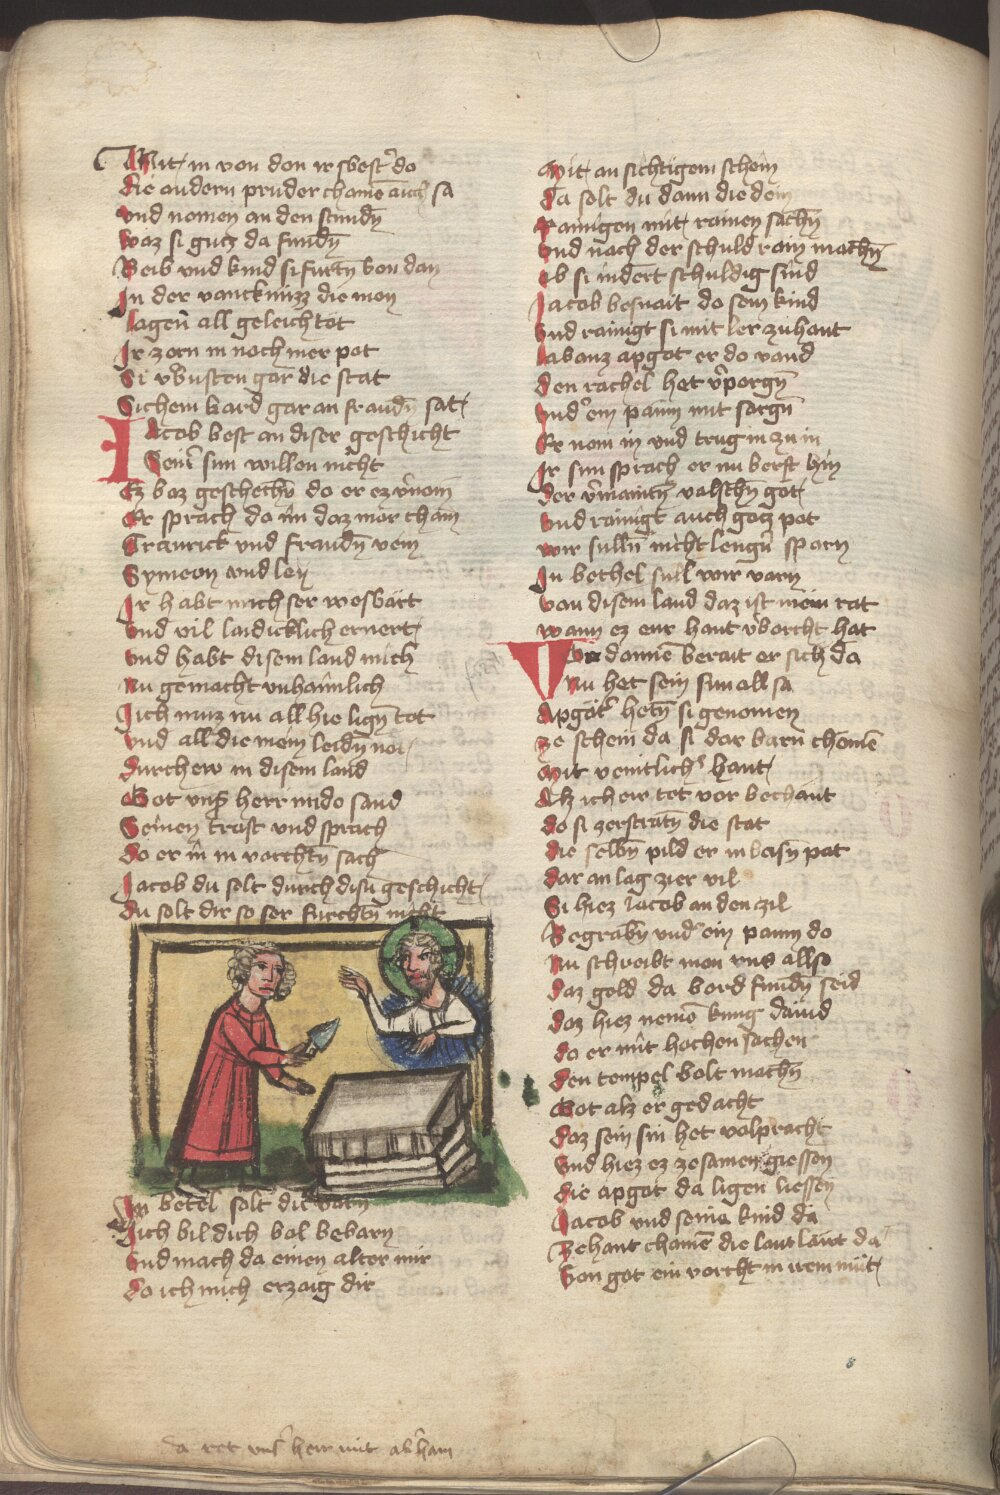 Mit im von don ir swester do
die andern pruder chamē auch sa
vnd nomen an den stundn̄
waz si gutz da fundn̄
Weib vnd kind si furtn̄ von dan
In der vancknüzz die mon
lagen all geleich tot
Ir zorn in noch mer pot
Si vͤbusten gar die stat
Sichem ward gar an fraudn̄ sat
Jacob west an diser geschicht
Seiner sun willen nicht
Ez waz geschechn̄ do er ez vernom
Er sprach do im daz mār cham
Traurick vnd fraudn̄
Symeon vnd leui
Ir habt mich ser
vnd vil laidicklich ernert
vnd habt disem land mich
nu gemacht vnhaimlich
Ich muz nu all hie lign̄ tot
vnd all die mein leidn̄ not
durch ew in disem land
Got vnser herr im do sand
Seinen trost vnd sprach
do er in in vorchtn̄ sach
Jacob du solt durch disu geschicht
du solt dir so ser furchtn̄ nicht
In betel solt du varn
Jich wil dich wol bewarn
vnd mach da einen alter mir
do ich mich erzaig dir
Mit an sichtigem schein
Da solt du dann die dein
Rainigen mit rainen sachn̄
vnd nach der schuld rain machn̄
ob si indert schuldig sind
Jacob besvait do sein kind
vnd rainigt si mit ler zuhant
labanz apgot er do vand
den rachel het vͤporgn̄
vnder em paum mit sorgn̄
Er nom in vnd trug in zu in
Ir sun sprach er nu werft hin
der vermaintn̄ valschn̄ got
vnd rainigt auch gotz pot
wir sulln̄ nicht lenger sparn
In bethel sull wir varn
von disem land daz ist mein rat
wann ez eur hant vͤworcht hat
Von dannē berait er sich da
Nu het sein sun all sa
Apgöter hetn̄ si genomen
ze schein da si dar warn chomē
Mit veintlicher hant
Alz ich ew tet vor bechant
do si zerstratn̄ die stat
die selbn̄ pild er in weisn pat
dar an lag zier vil
Si hiez Jacob an den zil
Begrabn̄ vnder ein paum do
Nu schreibt mon vns allso
daz gold da ward fundn̄ seid
daz hiez nemē kung dauid
do er mit hochen sachen
den tempel wolt machn̄
Got alz er gedacht
daz sein sin het volpracht
vnd hiez ez zesamen giessen
die apgot da ligen liessen
Jacob vnd seine kind da
Zehant chamē die laut lāut da
Von got ein vorcht in irem müt
da ret vnser herr mit abrham